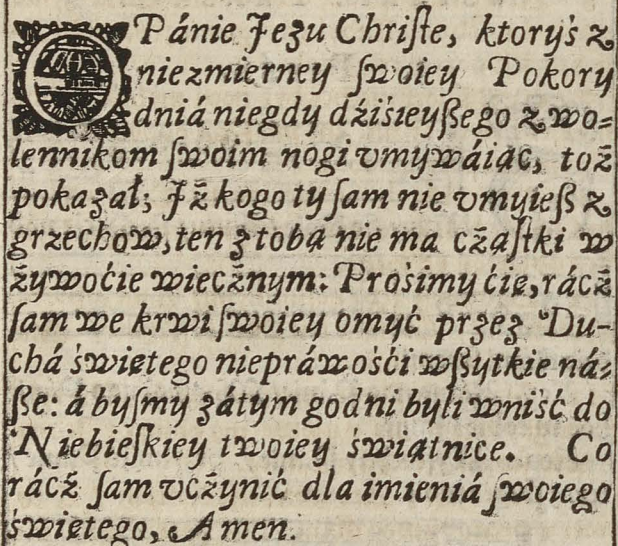 O Pánie Jezu Chriſte, ktoryś z
niezmierney ſwoiey Pokory
dniá niegdy dźiśieyßego zwo=
lennikom ſwoim nogi vmywáiąc, toż
pokazał; Jż kogo ty ſam nie vmyieß z
grzechow, ten z tobą nie ma cżąſtki w
żywoćie wiecżnym: Prośimy ćię, rácż
ſam we krwi ſwoiey omyć przez Du-
chá świętego niepráwośći wßytkie ná=
ße: á byſmy zátym godni byli wniść do
Niebieſkiey twoiey świątnice. Co
rácż ſam vcżynić dla imieniá ſwoiego
świętego, Amen.